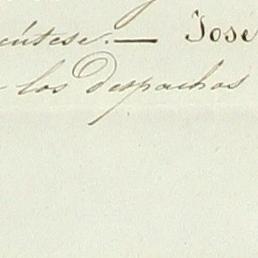 cútese.— José
los despachos